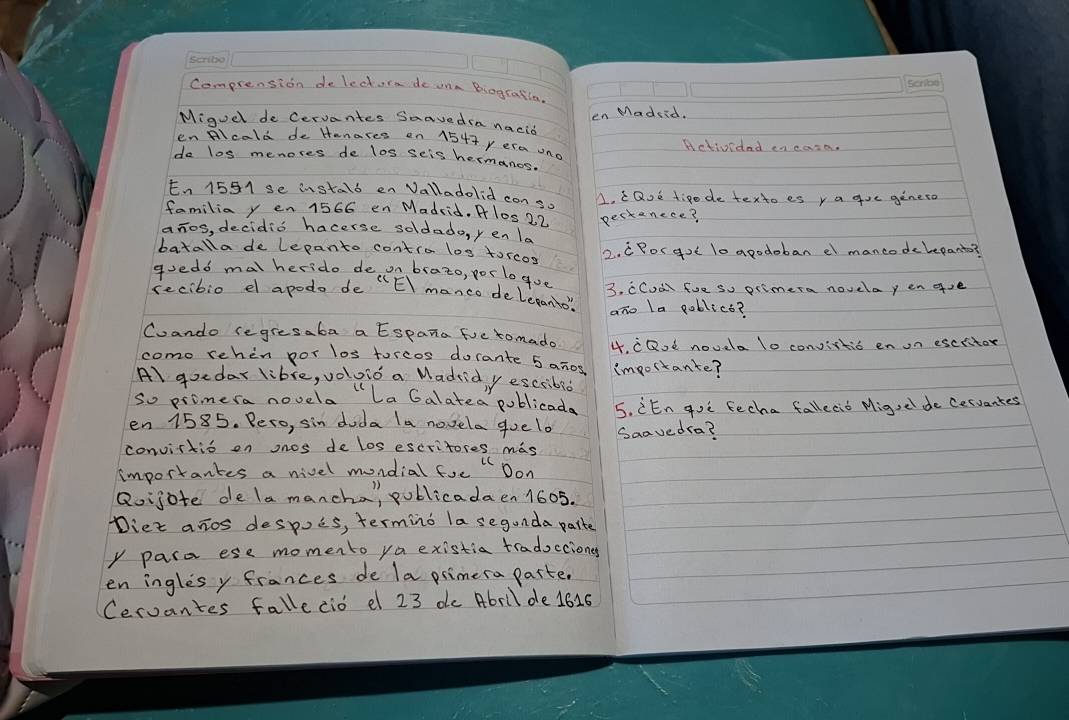 Scribe
Comprensión de lectura de una Biografía.
Miguel de Cervantes Saavedra nació
en Alcalá de Henares en 1547 y era uno
de los menores de los seis hermanos.
En 1551 se instaló en Valladolid con su
familia y en 1566 en Madrid. A los 22
años, decidió hacerse soldado, y en la
batalla de Lepanto contra los turcos
quedó mal herido de un brazo, por lo que
recibio el apodo de "El manco de Lepanto".
Cuando regresaba a España fue tomado
como rehén por los turcos durante 5 años
Al quedar libre, volvió a Madrid, y escribió
su primera novela "La Galatea" publicada
en 1585. Pero, sin duda la novela que lo
convirtió en unos de los escritores más
importantes a nivel mundial fue "Don
Quijote de la mancha", publicada en 1605.
Diez años después, terminó la segunda parte
y para ese momento ya existia traducciones
en inglés y frances de la primera parte.
Cervantes falleció el 23 de Abril de 1616
Scribe
en Madrid.
Actividad en casa.
1. ¿Qué tipo de texto es y a que género
pertenece?
2. ¿Porqué lo apodoban el manco de Lepanto?
3. ¿Cuál fue su primera novela y en que
año la publicó?
4. ¿Qué novela lo convirtió en un escritor
importante?
5. ¿En qué fecha falleció Miguel de Cervantes
Saavedra?